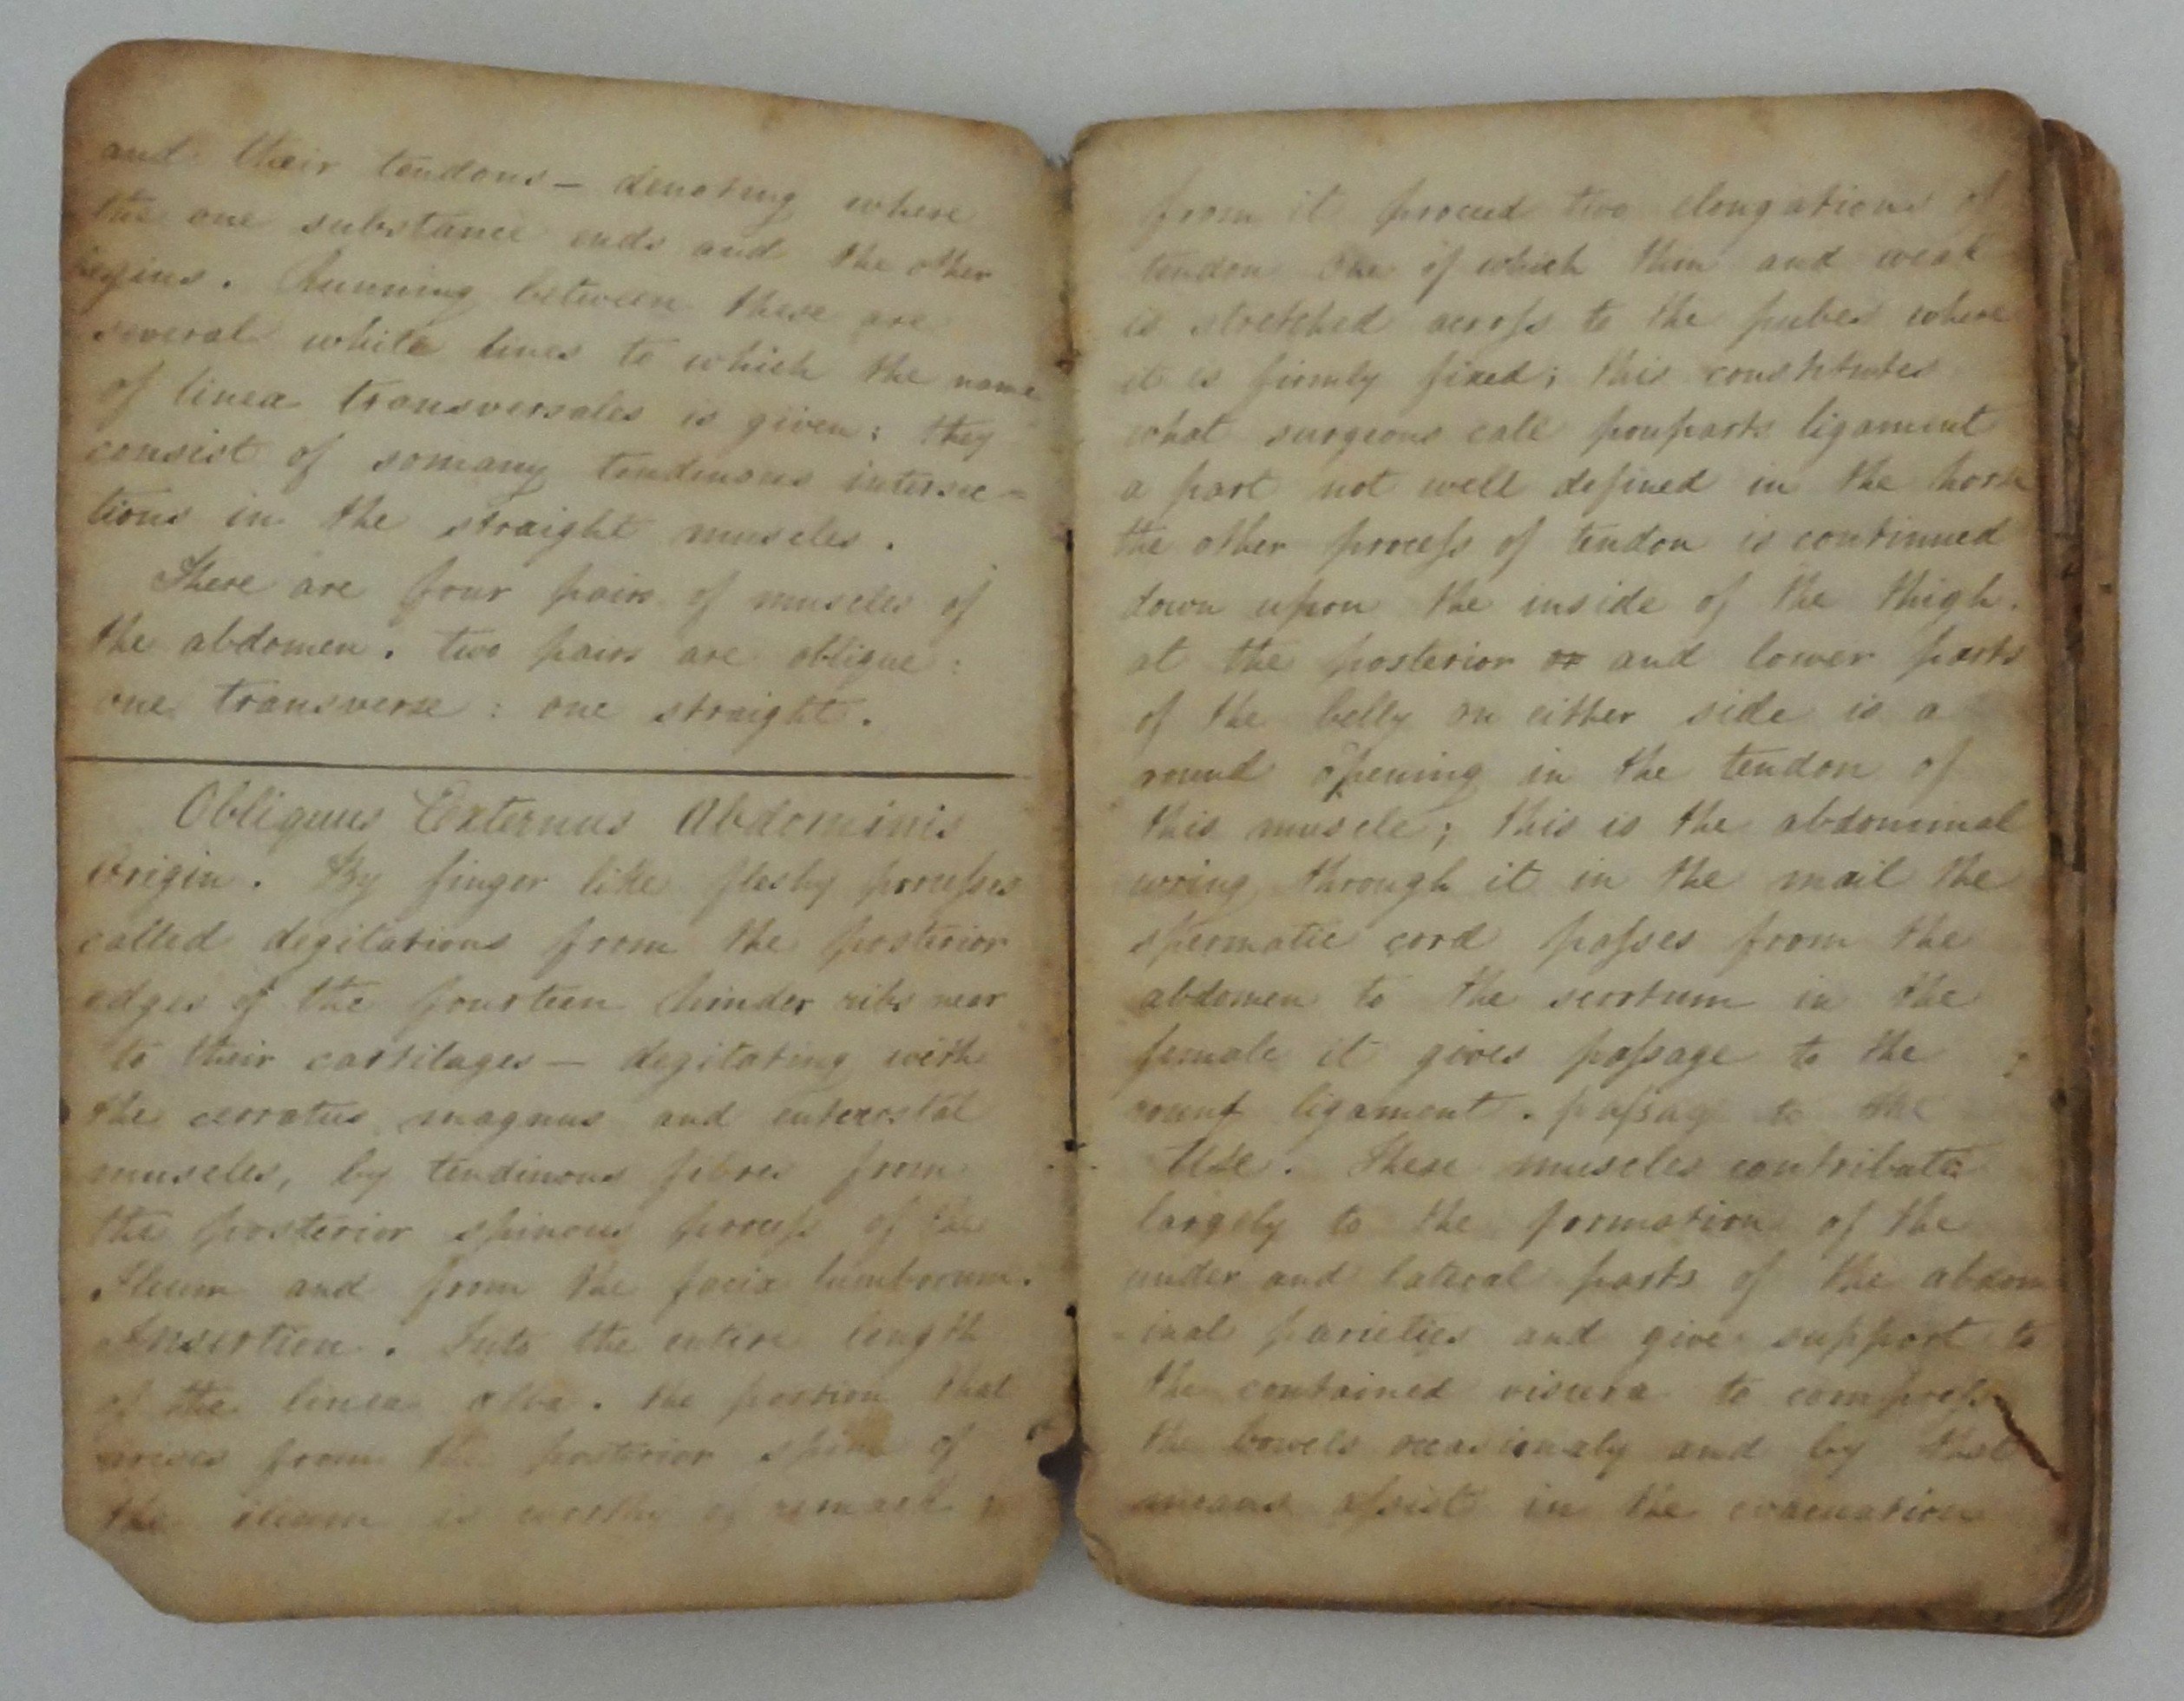 and their tendons — denoting where
the one substance ends and the other
begins. Running between these are
several white lines to which the name
of linea transversales is given: they
consist of somany tendinous intersec=
tions in the straight muscles.
There are four pairs of muscles of
the abdomen. two pairs are oblique:
one transverse: one straight.
Obliquus Externus Abdominis
Origin. By finger like fleshy processes
called degitations from the posterior
edges of the fourteen hinder ribs near
to their cartilages — degitating with
the serratus magnus and intercostal
muscles, by tendinous fibres from
the posterior spinous process of the
Ileum and from the facia lumborum.
Insertion. Into the entire length
of the linea alba. the portion that
arises from the posterior spine of
the ileum is worthy of remark
from it proceed two elongations of
tendon one of which thin and weak
is stretched across to the pubes where
it is firmly fixed; this constitutes
what surgeons call pouparts ligament
a part not well defined in the horse
the other process of tendon is continued
down upon the inside of the thigh.
at the posterior or and lower parts
of the belly on either side is a
round opening in the tendon of
this muscle; this is the abdominal
wring through it in the mail the
spermatic cord passes from the
abdomen to the scortum in the
female it gives passage to the
round ligament. passage to the
Use. These muscles contribute
largely to the formation of the
under and lateral parts of the abdom
-inal parieties and give support to
the contained viscera to compress
the bowels occasionaly and by that
means assist in the evacuation